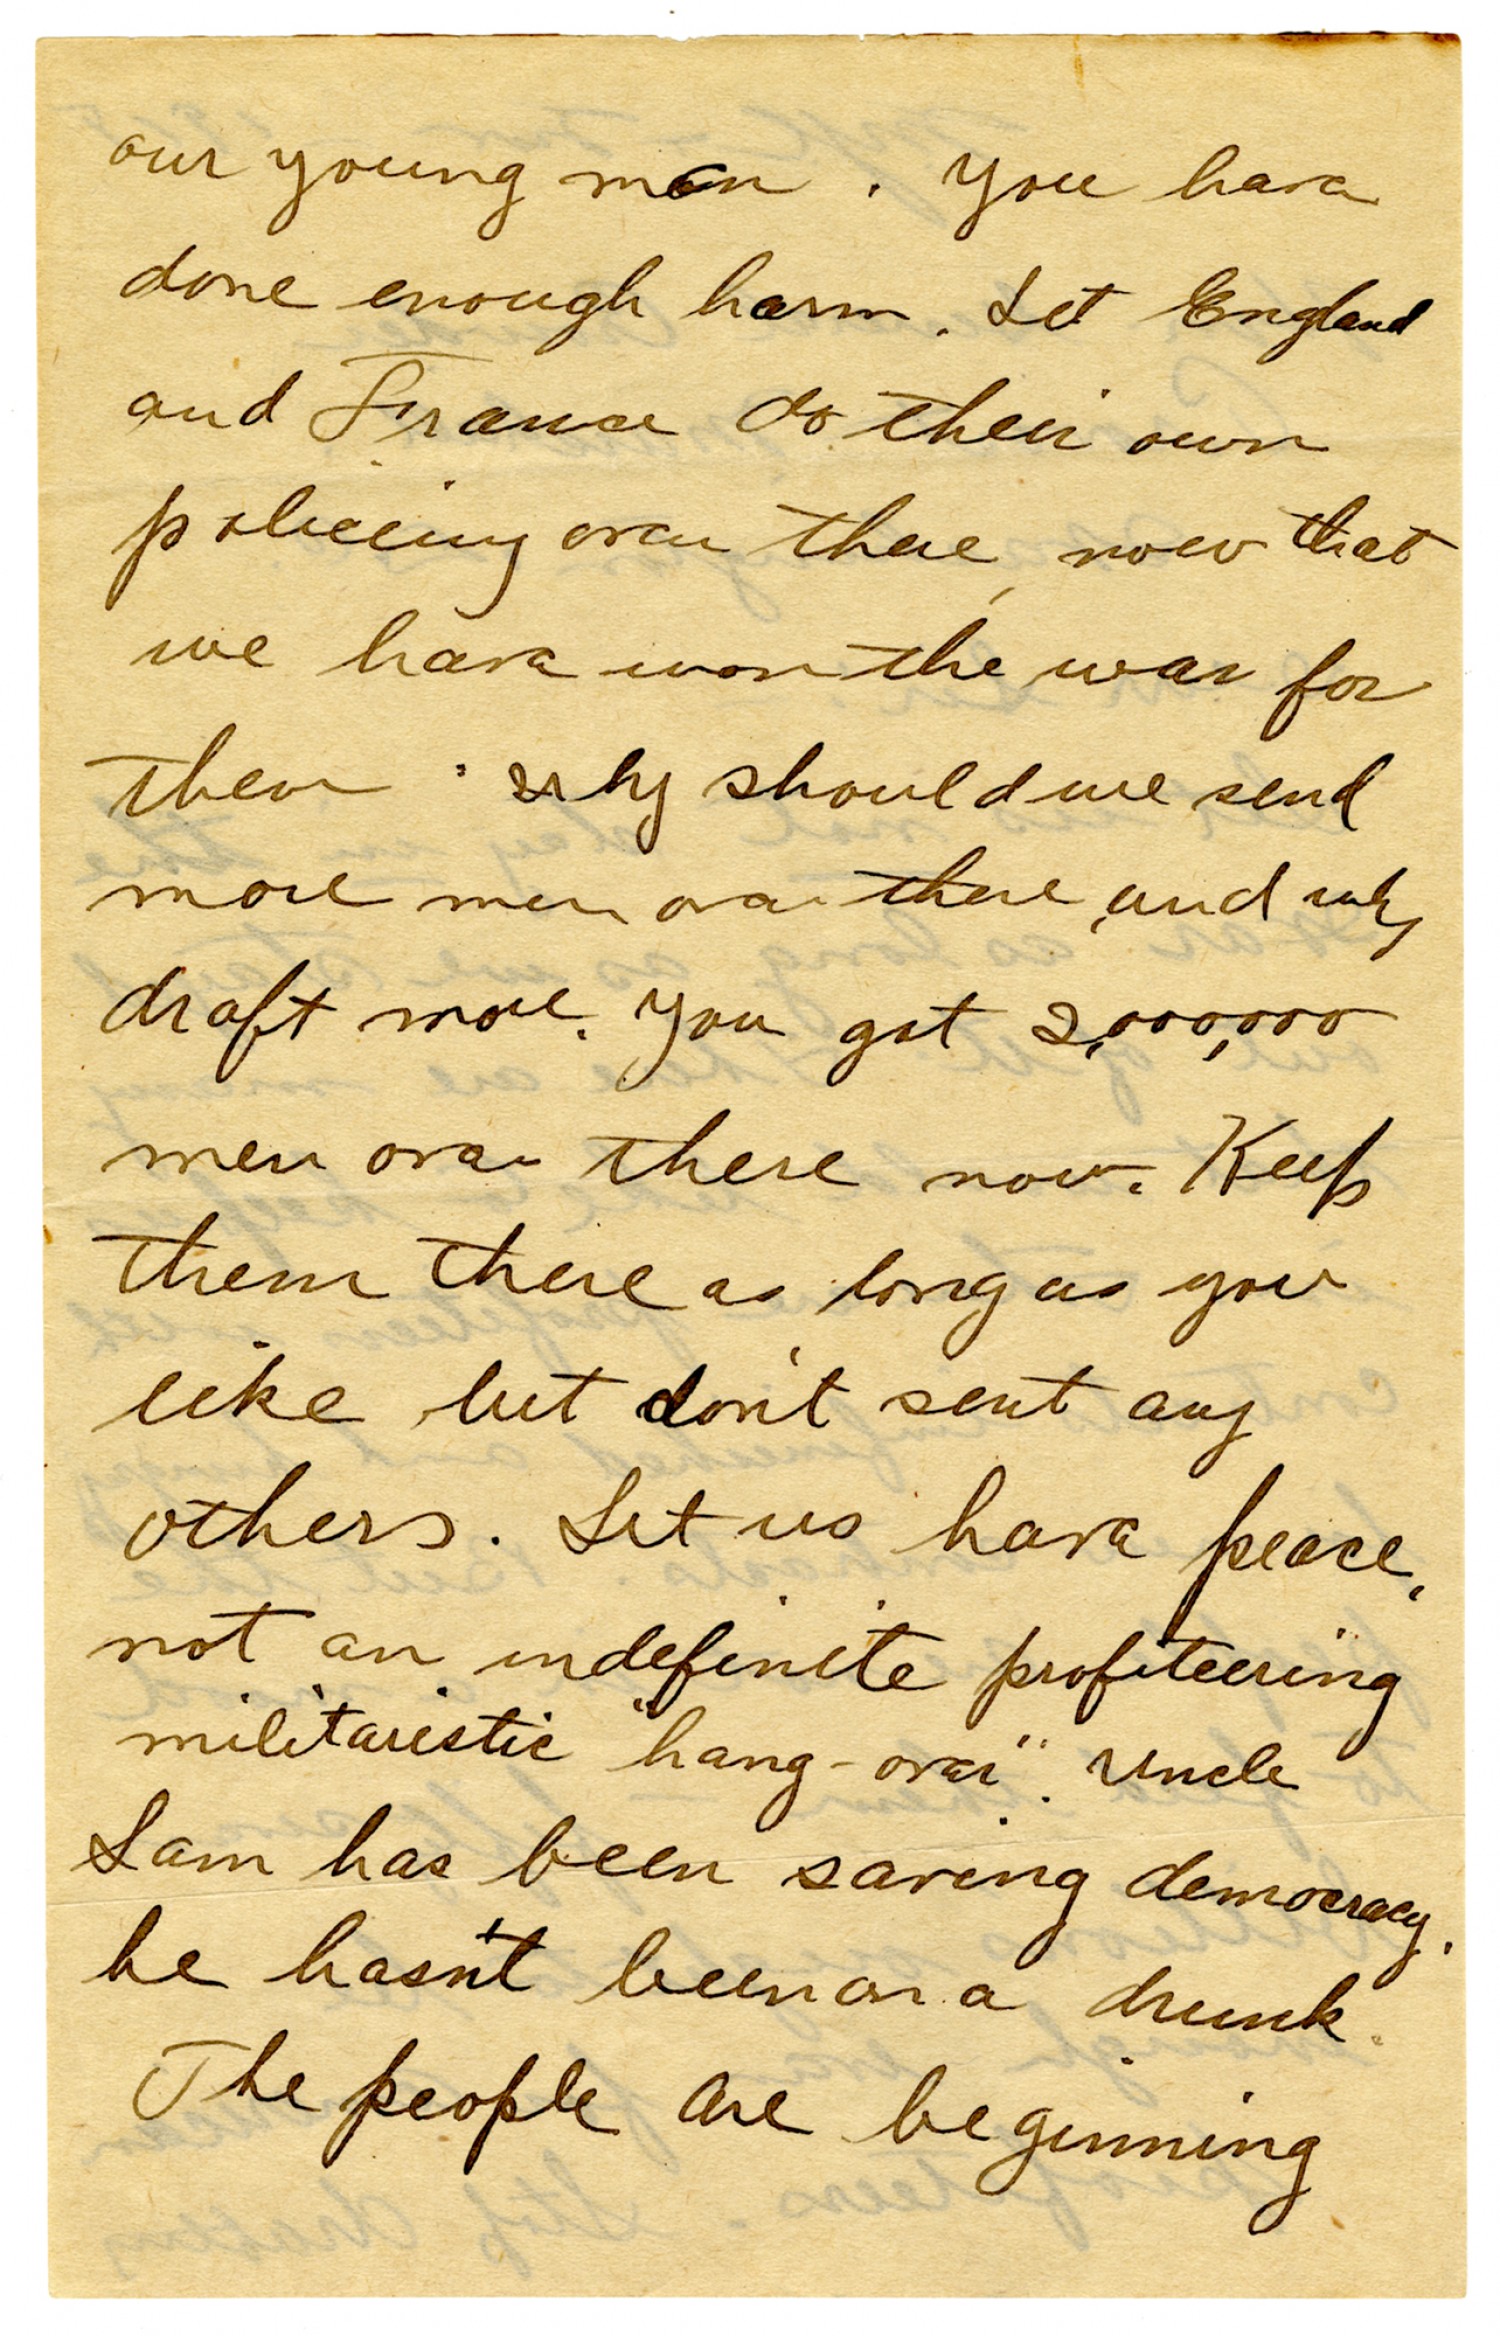 our young men. You have
done enough harm. Let England
and France do their own
policing over there, now that
we have won the war for
them. Why should we send
more men over there, and why
draft more. You got 2,000,000
men over there now. Keep
them there as long as you
like but don't sent any
others. Let us have peace,
not an indefinite profiteering
militaristic "hang-over". Uncle
Sam has been saving democracy.
he hasn't been on a drunk.
The people are beginning